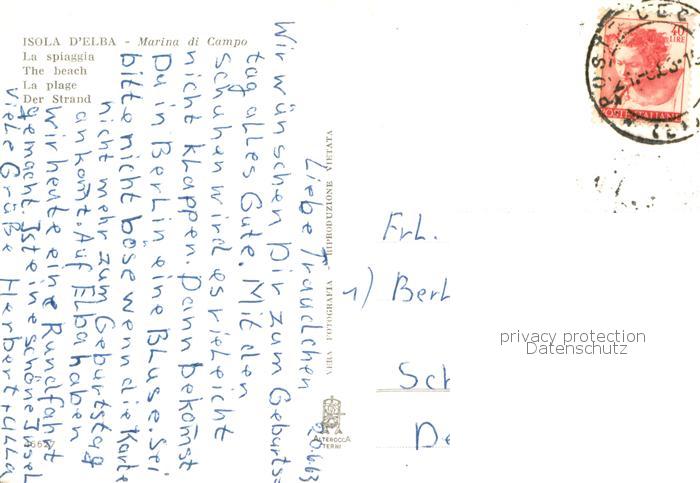 ISOLA D'ELBA - Marina di Campo
La spiaggia
The beach
La plage
Der Strand
40
LIRE
POSTE ITALIANE
20.6.63
Liebe Traudchen
Wir wünschen Dir zum Geburts-
tag alles Gute. Mit den
Schuhen wird es vieleicht
nicht klappen. Dann bekomst
Du in Berlin eine Bluse. Sei
bitte nicht böse wenn die Karte
nicht mehr zum Geburtstag
ankomt. Auf Elba haben
wir heute eine Rundfahrt
gemacht. Ist eine schöne Insel
Viele Grüße Herbert + Ulla
VERA FOTOGRAFIA - RIPRODUZIONE VIETATA
ALTEROCCA
TERNI
Frl.
1) Berl
Sch
De
privacy protection
Datenschutz